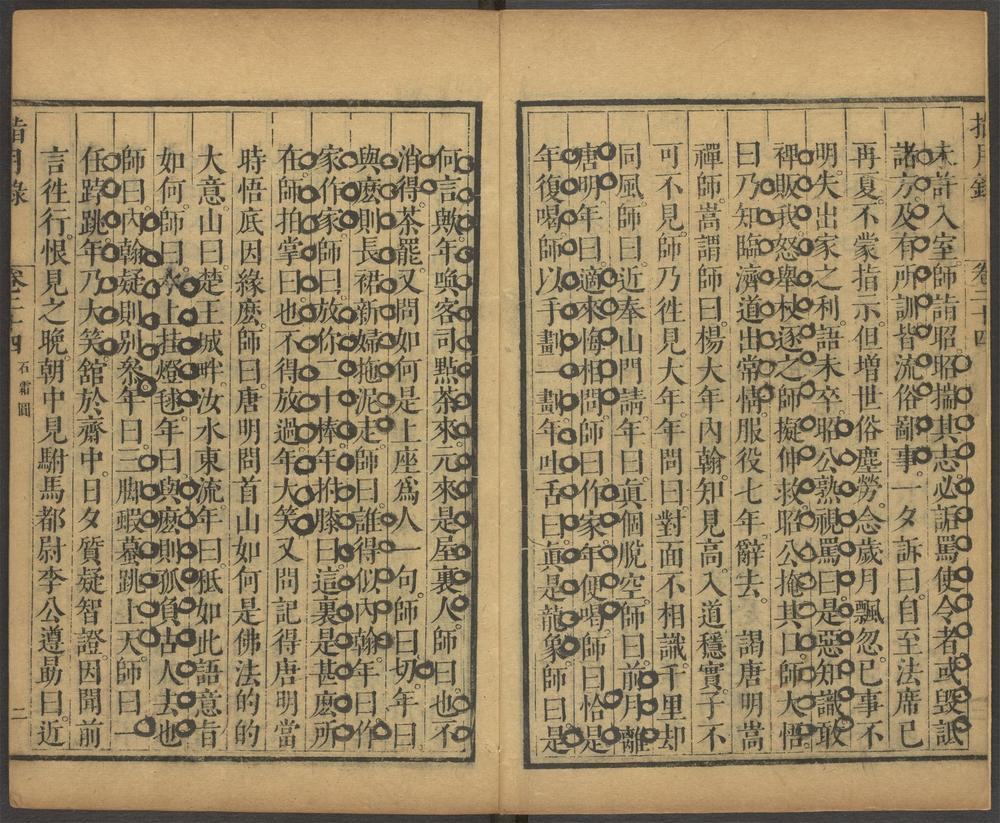 指月錄 卷二十四
未許入室。師詣昭。昭揣其志。必詬罵使令者。或毀詆
諸方。及有所訓。皆流俗鄙事。一夕訴曰。自至法席已
再夏。不蒙指示。但增世俗塵勞。念歲月飄忽。己事不
明。失出家之利。語未卒。昭公熟視罵曰。是惡知識。敢
裨販我。怒舉杖逐之。師擬伸救。昭公掩其口。師大悟。
曰。乃知臨濟道出常情。服役七年辭去。 謁唐明嵩
禪師。嵩謂師曰。楊大年內翰。知見高。入道穩實。子不
可不見。師乃往見大年。年問曰。對面不相識。千里却
同風。師曰。近奉山門請。年曰。真個脫空。師曰。前月離
唐明。年曰。適來悔相問。師曰。作家。年便喝。師曰。恰是。
年復喝。師以手劃一劃。年吐舌曰。真是龍象。師曰。是
何言歟。年喚客司點茶來。元來是屋裏人。師曰。也不
消得。茶罷。又問。如何是上座為人一句。師曰。切。年曰。
與麼則長裙新婦拖泥走。師曰。誰得似內翰。年曰。作
家作家。師曰。放你二十棒。年拊膝曰。這裏是甚麼所
在。師拍掌曰。也不得放過。年大笑。又問。記得唐明當
時悟底因緣麼。師曰。唐明問首山。如何是佛法的的
大意。山曰。楚王城畔。汝水東流。年曰。秪如此語。意旨
如何。師曰。水上挂燈毬。年曰。與麼則孤負古人去也。
師曰。內翰疑則別參。年曰。三脚蝦蟇跳上天。師曰。一
任䟦跳。年乃大笑。舘於齋中。日夕質疑智證。因聞前
言往行。恨見之晚。朝中見駙馬都尉李公遵勗曰。近
指月錄 卷二十四 石霜圓 二